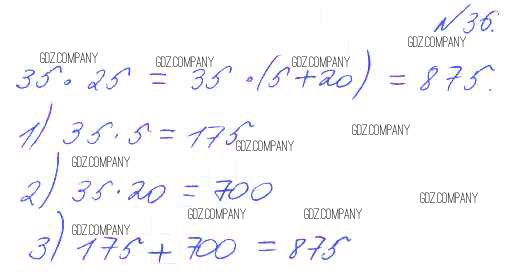 № 36.
GDZ.COMPANY
GDZ.COMPANY GDZ.COMPANY GDZ.COMPANY
35 · 25 = 35 · (5+20) = 875.
1) 35 · 5 = 175
GDZ.COMPANY GDZ.COMPANY
GDZ.COMPANY
2) 35 · 20 = 700
GDZ.COMPANY
GDZ.COMPANY GDZ.COMPANY
GDZ.COMPANY
3) 175 + 700 = 875